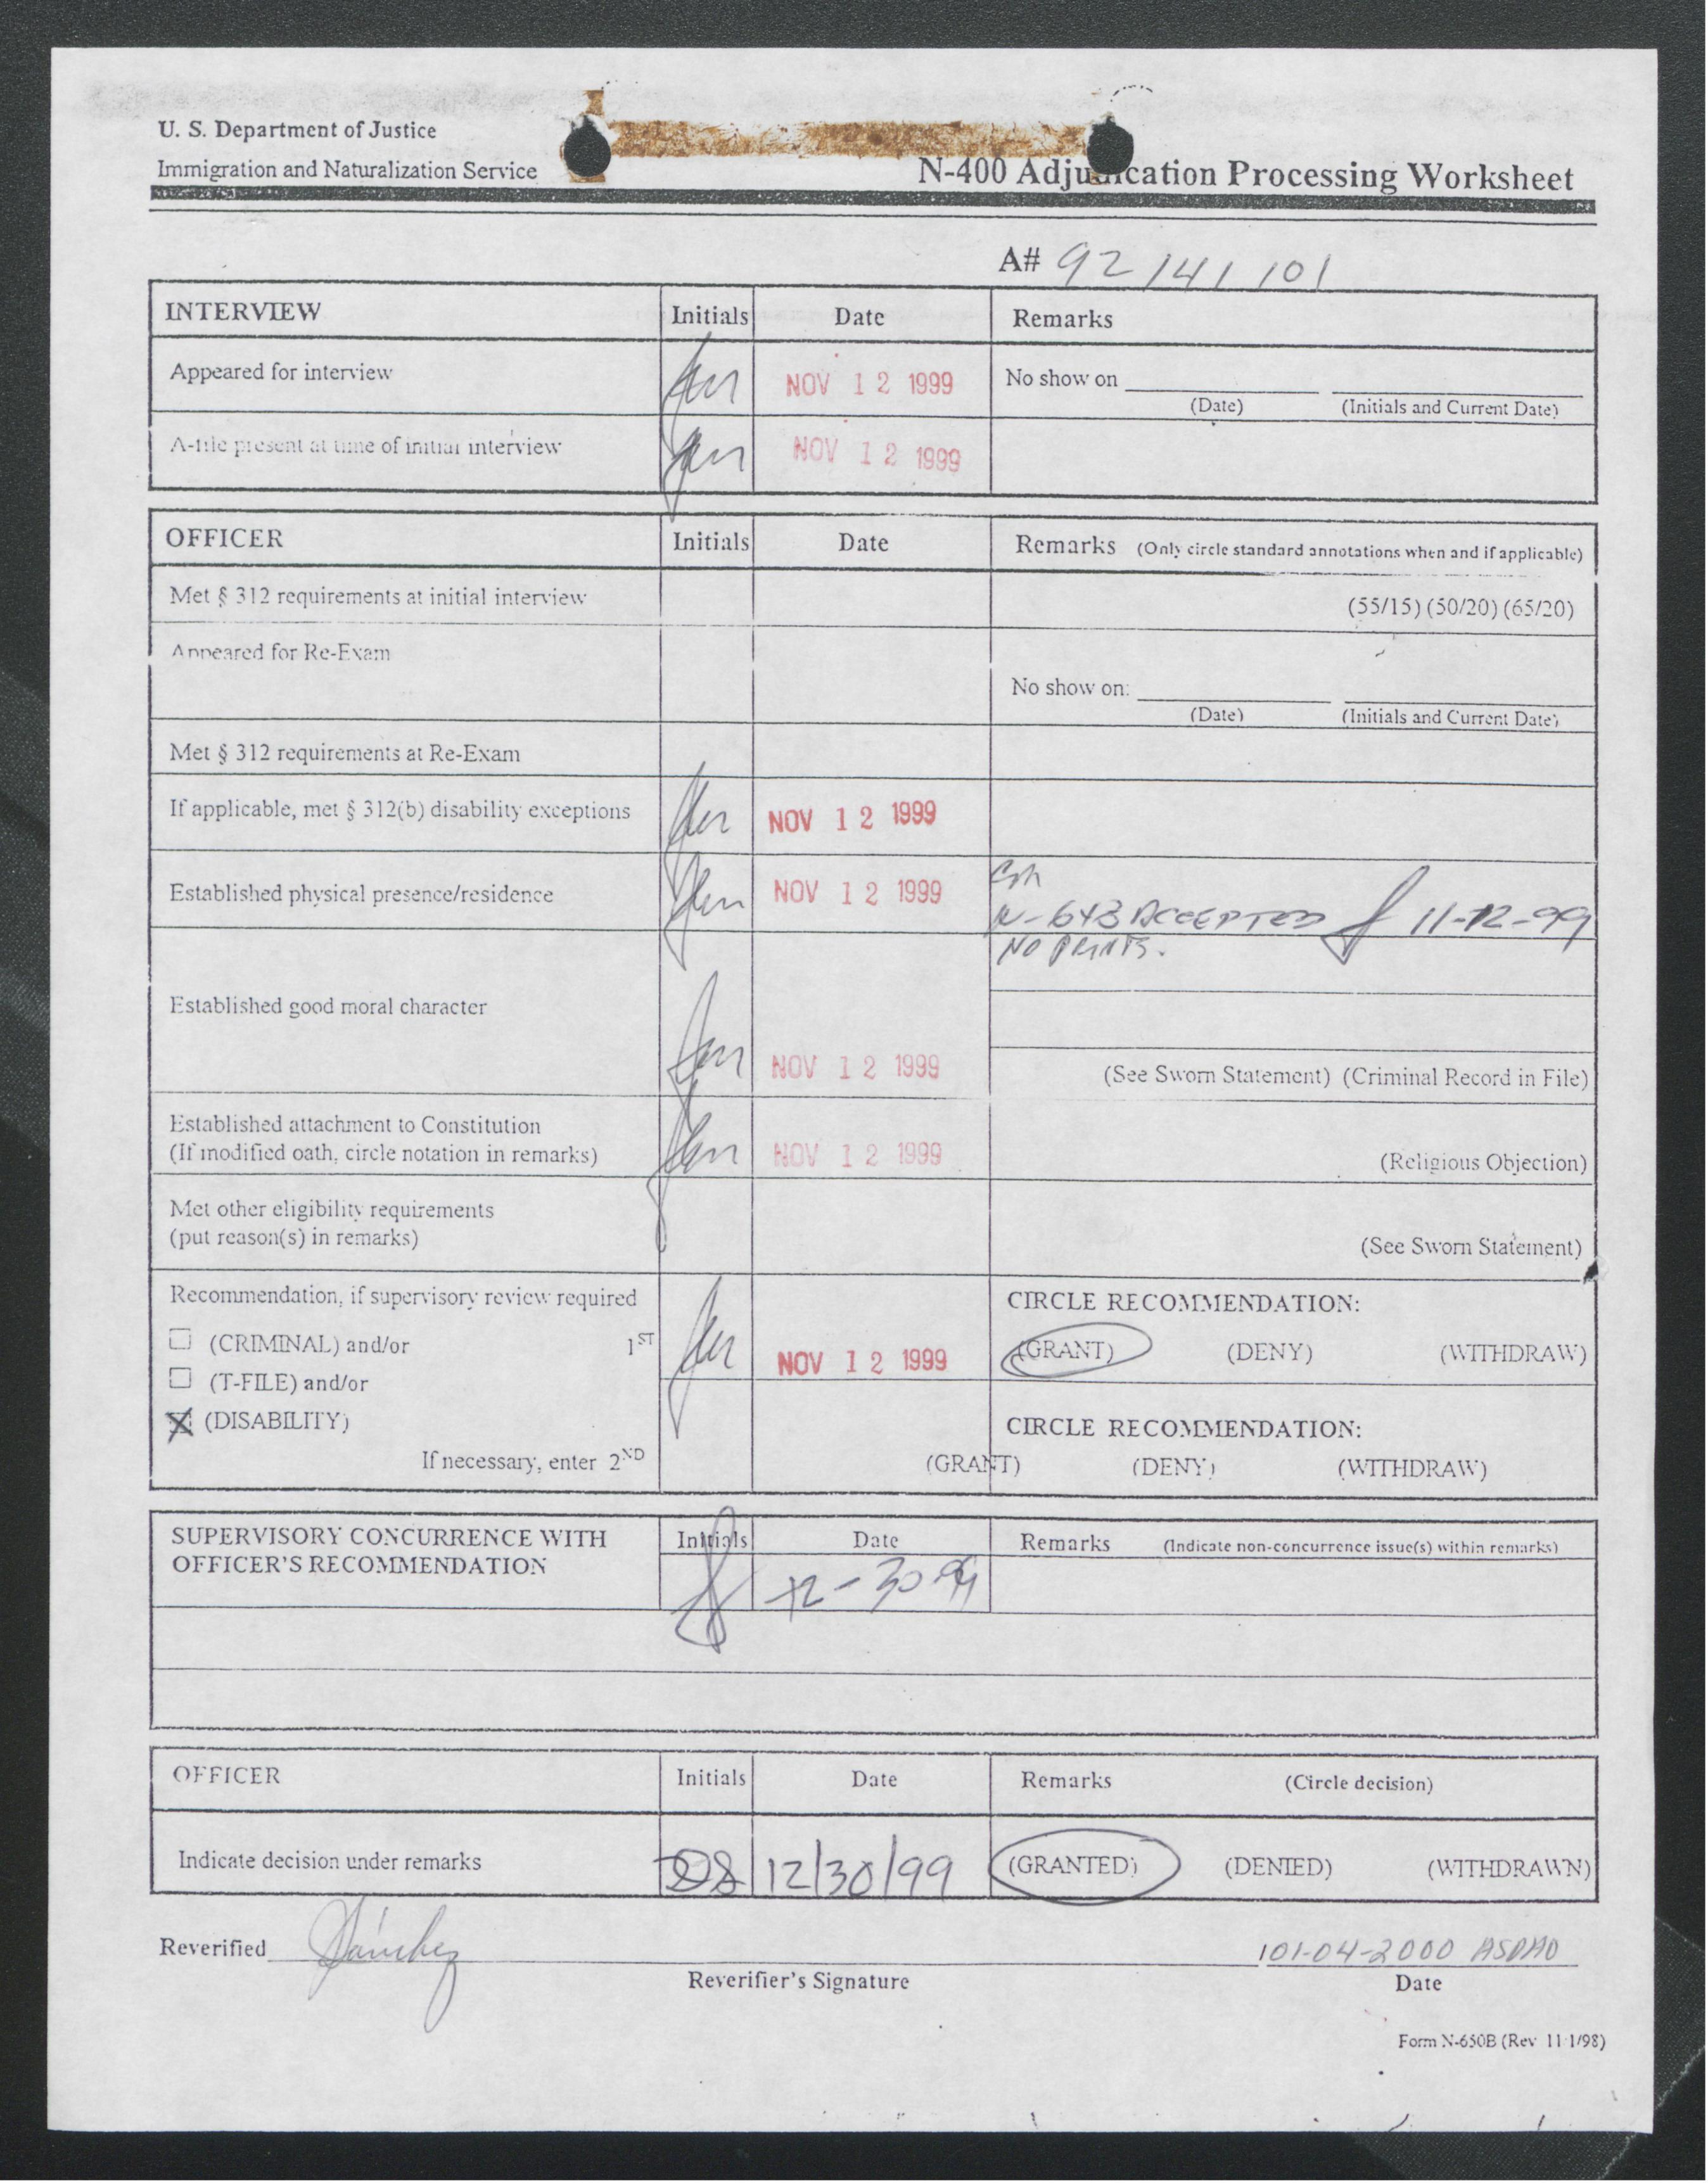 U. S. Department of Justice
Immigration and Naturalization Service
N-400 Adjudication Processing Worksheet
A# 92 141 101
INTERVIEW Initials Date Remarks
Appeared for interview NOV 12 1999 No show on
(Date) (Initials and Current Date)
A-file present at time of initial interview NOV 12 1999
OFFICER Initials Date Remarks (Only circle standard annotations when and if applicable)
Met § 312 requirements at initial interview (55/15) (50/20) (65/20)
Appeared for Re-Exam
No show on:
(Date) (Initials and Current Date)
Met § 312 requirements at Re-Exam
If applicable, met § 312(b) disability exceptions NOV 12 1999
Established physical presence/residence NOV 12 1999
N-648 ACCEPTED 11-12-99
NO PRINTS.
Established good moral character
NOV 12 1999 (See Sworn Statement) (Criminal Record in File)
Established attachment to Constitution
(If modified oath, circle notation in remarks) NOV 12 1999 (Religious Objection)
Met other eligibility requirements
(put reason(s) in remarks) (See Sworn Statement)
Recommendation, if supervisory review required CIRCLE RECOMMENDATION:
(CRIMINAL) and/or 1ST NOV 12 1999 (GRANT) (DENY) (WITHDRAW)
(T-FILE) and/or
(DISABILITY) CIRCLE RECOMMENDATION:
If necessary, enter 2ND (GRANT) (DENY) (WITHDRAW)
SUPERVISORY CONCURRENCE WITH Initials Date Remarks (Indicate non-concurrence issue(s) within remarks)
OFFICER'S RECOMMENDATION 12-30-99
OFFICER Initials Date Remarks (Circle decision)
Indicate decision under remarks 12/30/99 (GRANTED) (DENIED) (WITHDRAWN)
Reverified Sánchez 01-04-2000 ASDAO
Reverifier's Signature Date
Form N-650B (Rev 11/1/98)